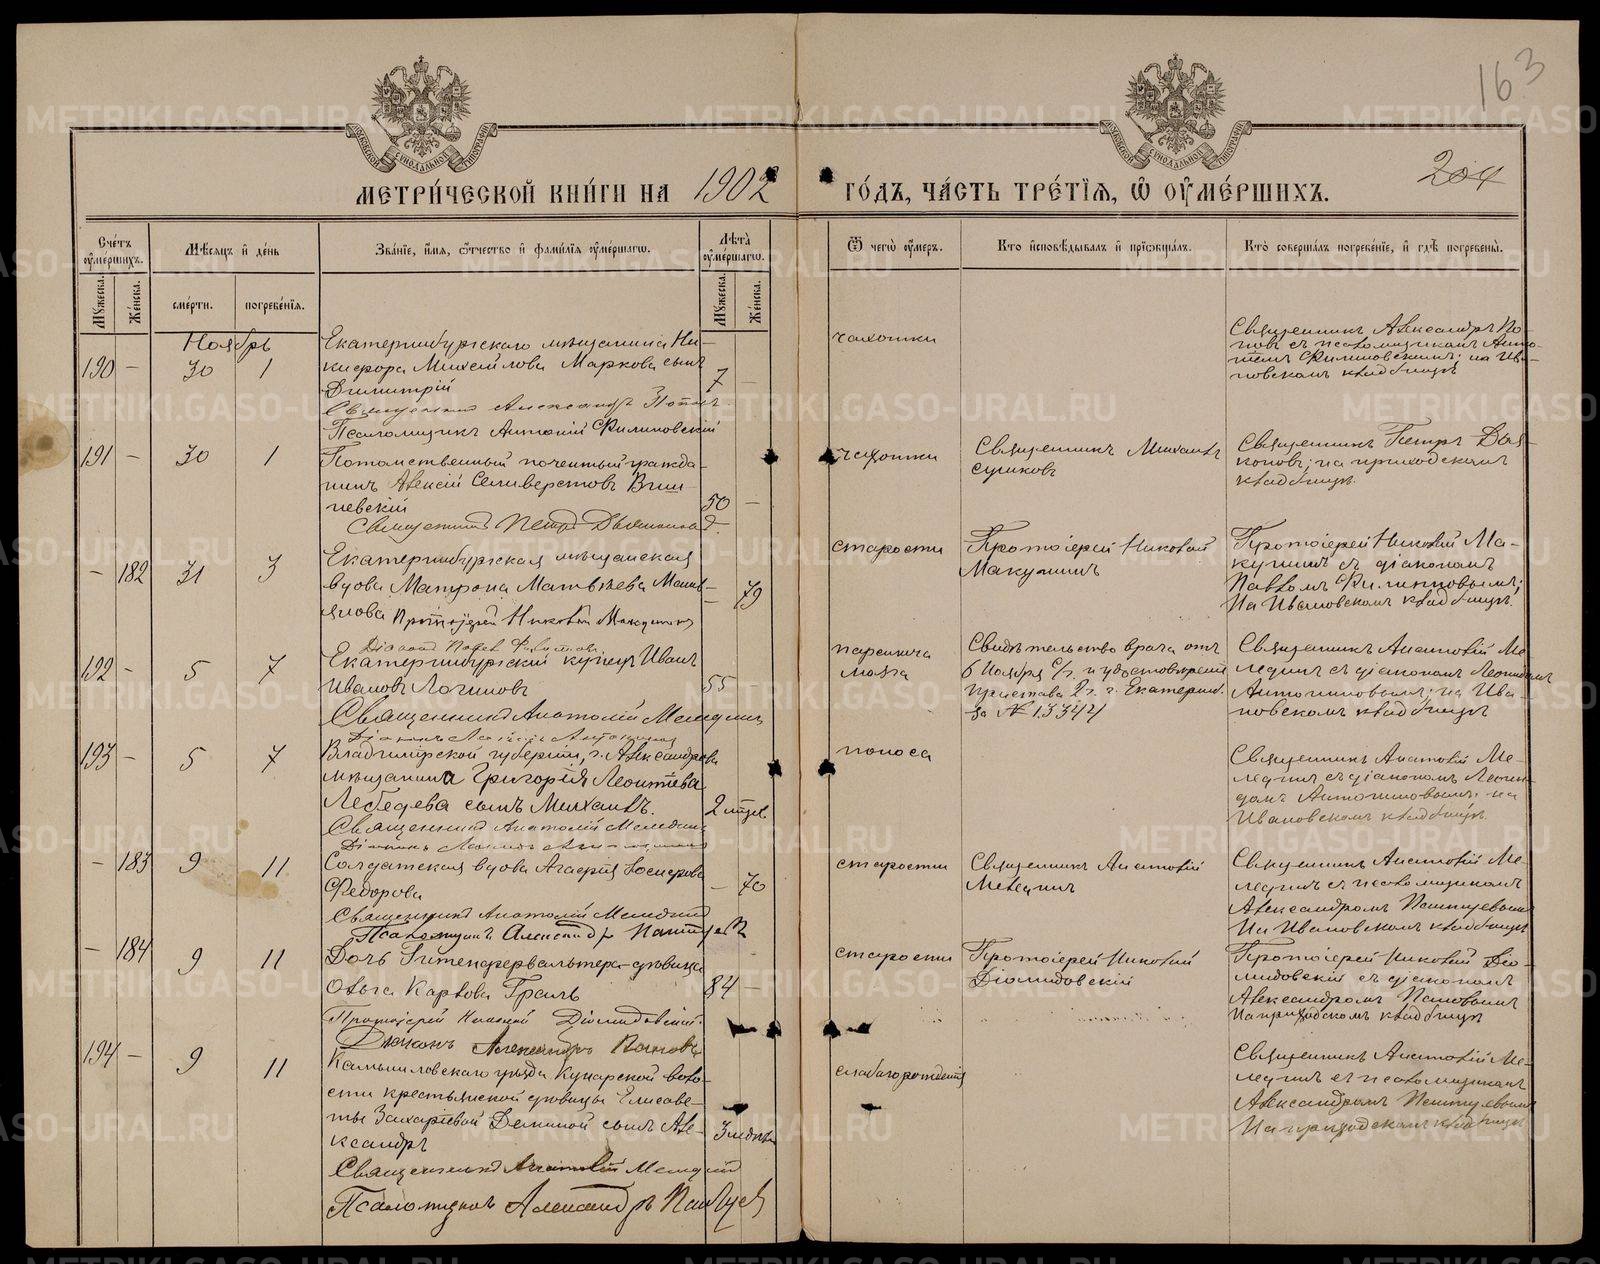 163
204
МЕТРИЧЕСКОЙ КНИГИ НА 1902 ГОДЪ, ЧАСТЬ ТРЕТІЯ, Ѡ ОУМЕРШИХЪ.
Счетъ оумершихъ.
Мѣсяцъ и день
Званіе, имя, отчество и фамилія оумершагѡ.
Лѣта оумершагѡ.
Ѿ чегѡ оумеръ.
Кто исповѣдывалъ и пріобщалъ.
Кто совершалъ погребеніе, и гдѣ погребены.
Мужеска.
Женска.
смерти.
погребенія.
Мужеска.
Женска.
Ноябрь
190 — 30 1
Екатеринбургскаго мѣщанина Ни-
кифора Михайлова Маркова сынъ
Димитрій
7 —
Священникъ Александръ Поповъ
Псаломщикъ Антоній Филиповскій
чахотки
Священникъ Александръ По-
повъ съ псаломщикомъ Анто-
ніемъ Филиповскимъ; на Ива-
новскомъ кладбищѣ
191 — 30 1
Потомственный почетный гражда-
нинъ Алексій Селиверстовъ Виш-
невскій
50 —
Священникъ Петръ Дьяконовъ
чахотки
Священникъ Михаилъ
Сушковъ
Священникъ Петръ Дья-
коновъ; на приходскомъ
кладбищѣ.
— 182 31 3
Екатеринбургская мѣщанская
вдова Матрона Матвѣева
Протоіерей Николай
— 79
старости
Протоіерей Николай
Макушинъ
Протоіерей Николай Ма-
кушинъ съ діакономъ
Павломъ Филипповымъ;
На Ивановскомъ кладбищѣ.
192 — 5 7
Екатеринбургскій купецъ Иванъ
Ивановъ Логиновъ
55
Священникъ Анатолій Мелединъ
паралича
мозга
Свидѣтельство врача отъ
6 Ноября с/г. и удостовѣреніе
Пристава 2 ч. г. Екатеринб.
за № 13344
Священникъ Анатолій Ме-
лединъ съ діакономъ Леонидомъ
Антониновымъ; на Ива-
новскомъ кладбищѣ
193 — 5 7
Владимірской губерніи, г. Александрова
мѣщанина Григорія Леонтіева
Лебедева сынъ Михаилъ.
2 мѣсяц.
Священникъ Анатолій Мелединъ
поноса
Священникъ Анатолій Ме-
лединъ съ діакономъ Леони-
домъ Антониновымъ; на
Ивановскомъ кладбищѣ.
— 183 9 11
Солдатская вдова Агафія
Федорова
— 70
Священникъ Анатолій Мелединъ
Псаломщикъ Александръ
старости
Священникъ Анатолій
Мелединъ
Священникъ Анатолій Ме-
лединъ съ псаломщикомъ
Александромъ
На Ивановскомъ кладбищѣ
— 184 9 11
Дочь Гитенфервальтера дѣвица
Ольга Карлова Граль
84 —
Протоіерей Николай Діомидовскій.
Діаконъ Александръ
старости
Протоіерей Николай
Діомидовскій
Протоіерей Николай Діо-
мидовскій съ діакономъ
Александромъ
На приходскомъ кладбищѣ
194 — 9 11
Камышловскаго уѣзда Кунарской воло-
сти крестьянской дѣвицы Елисаве-
ты Захаріевой Деминой сынъ Але-
ксандръ
Священникъ Анатолій Мелединъ
Псаломщикъ Александръ
слабаго рожденія
Священникъ Анатолій Ме-
лединъ съ псаломщикомъ
Александромъ
На приходскомъ кладбищѣ
METRIKI.GASO-URAL.RU